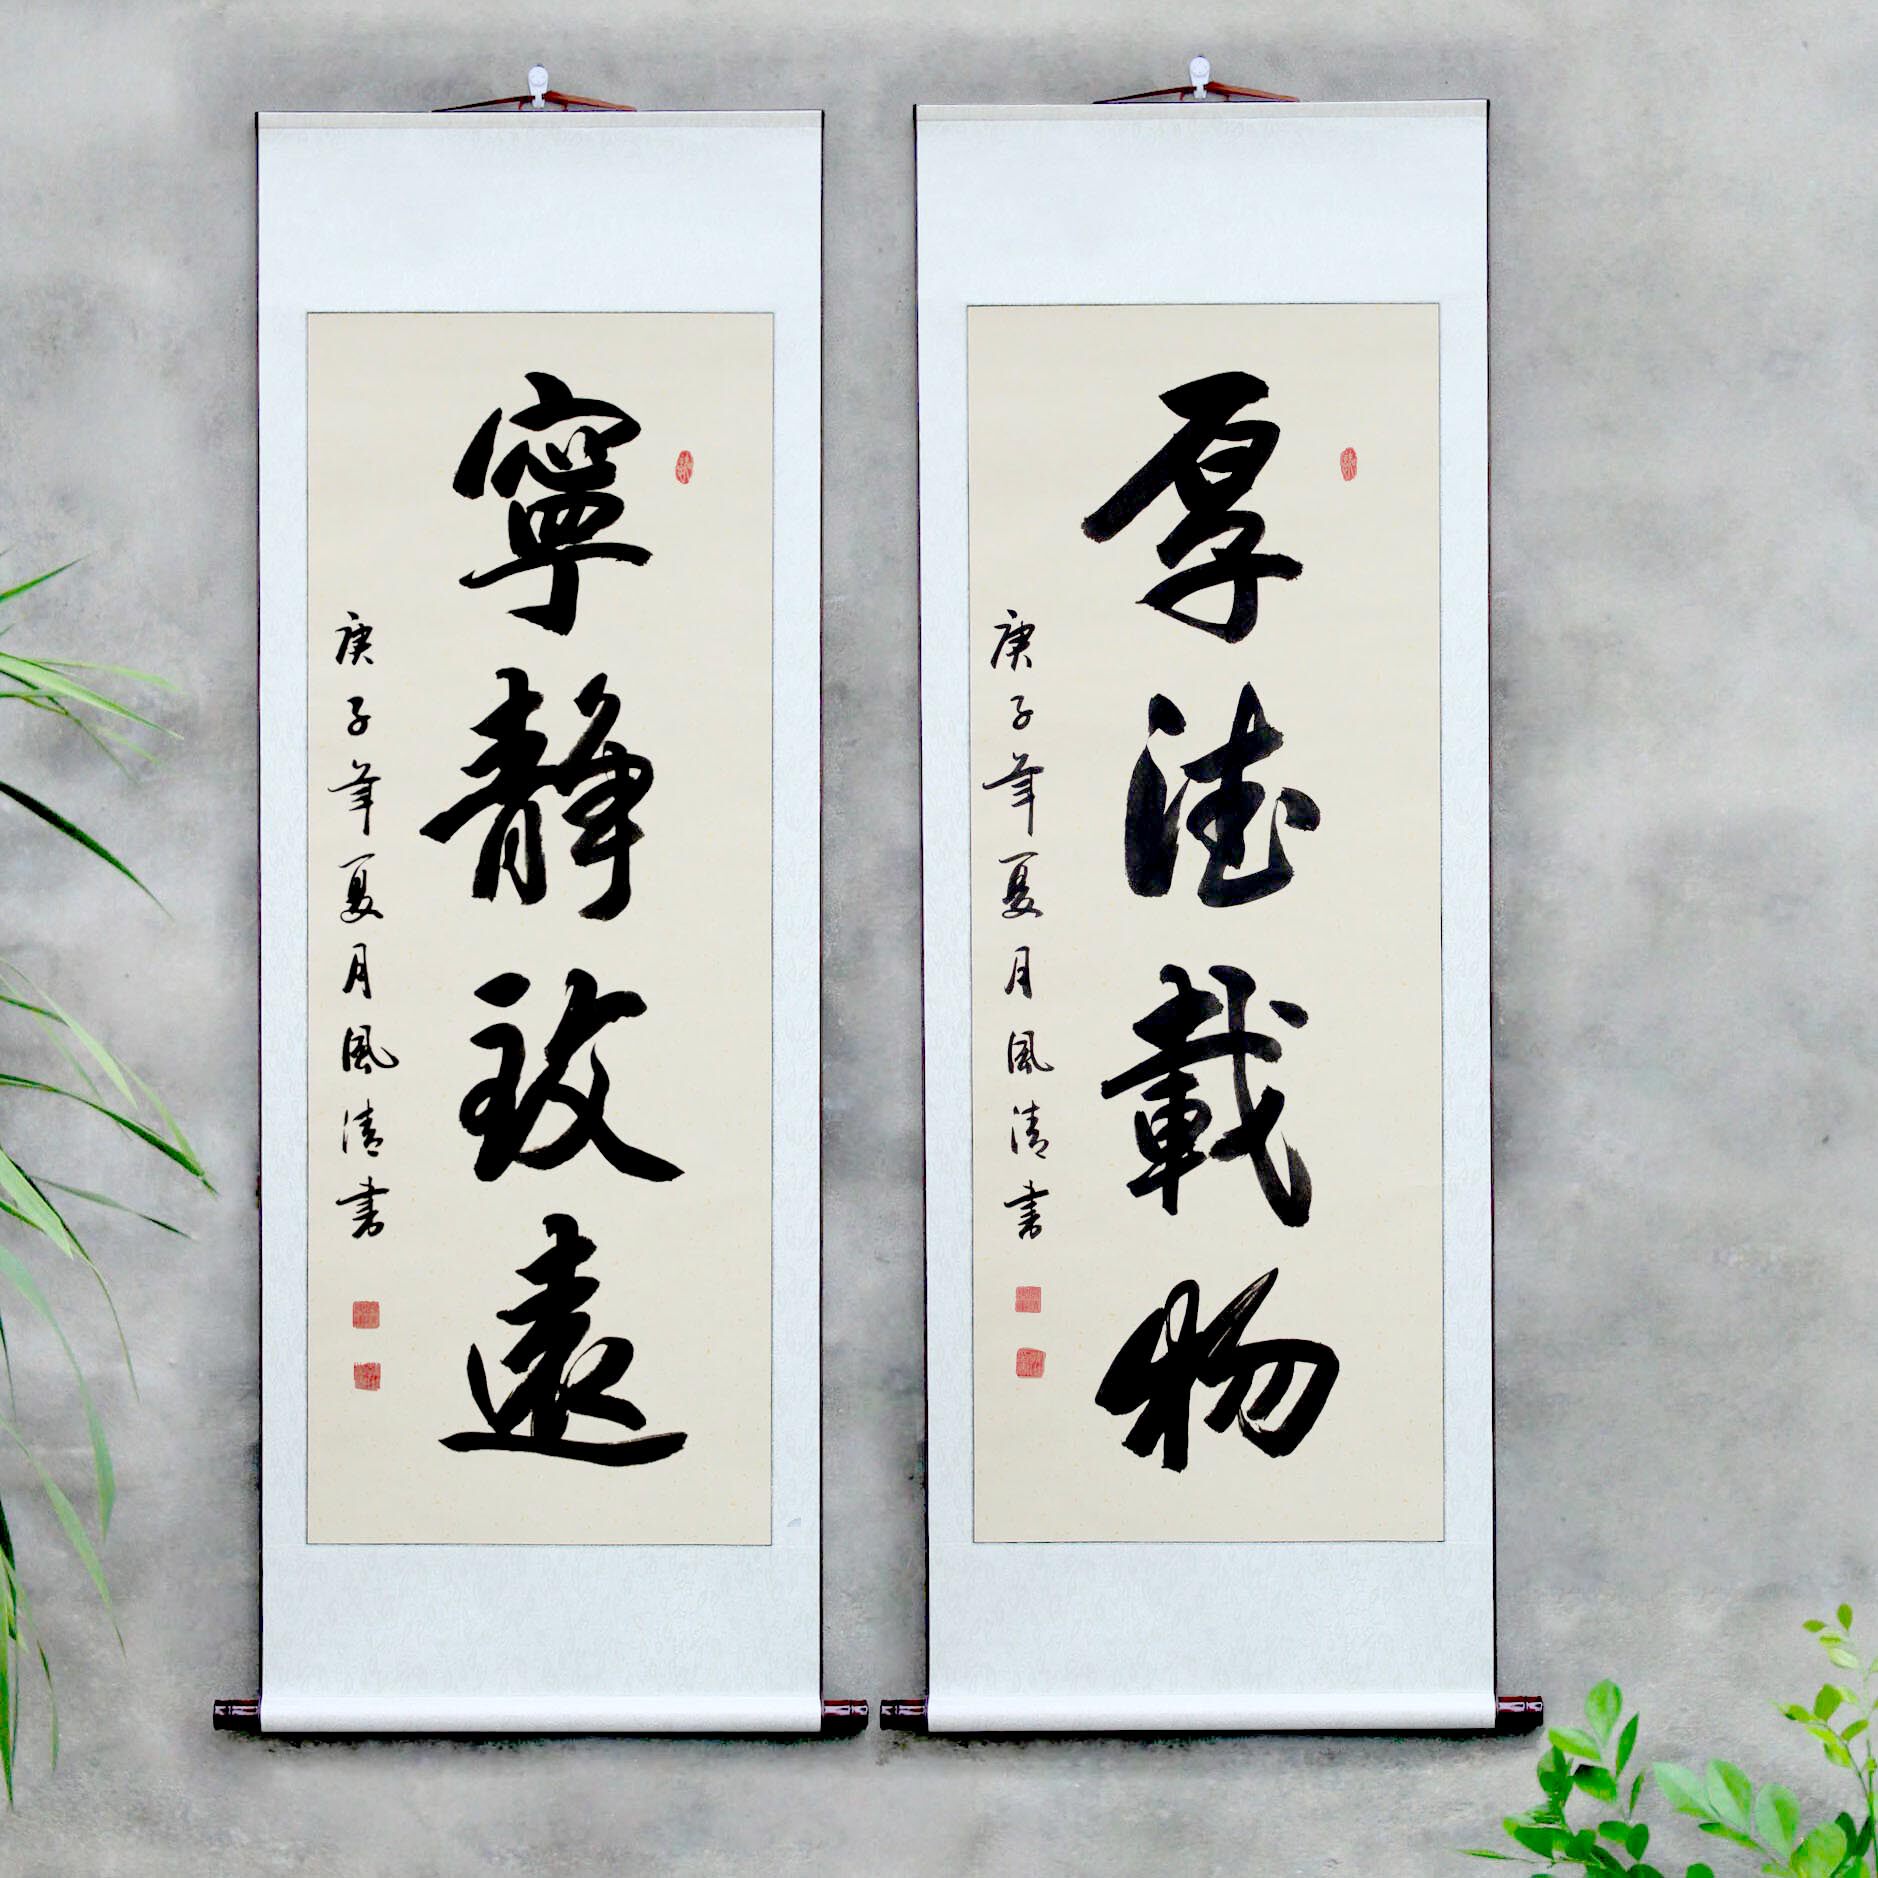 厚德載物
庚子年夏月風清書
寧靜致遠
庚子年夏月風清書